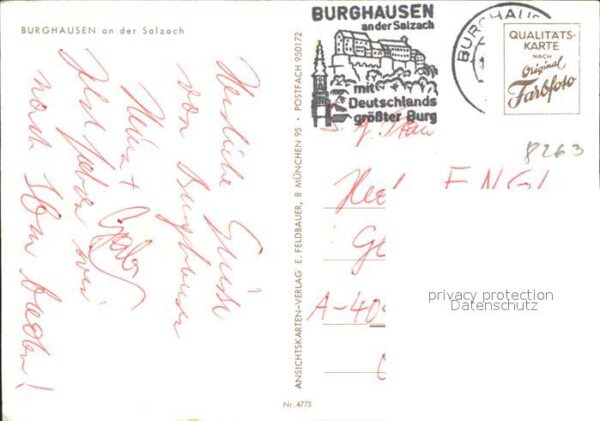 BURGHAUSEN an der Salzach
Herzliche Grüße
von Burghausen
Heinz +
Jetzt fahren wir
nach Baden!
ANSICHTSKARTEN-VERLAG E. FELDBAUER, 8 MÜNCHEN 95 · POSTFACH 950172
Nr. 4775
BURGHAUSEN
an der Salzach
mit
Deutschlands
größter Burg
BURGHAUS
QUALITÄTS-
KARTE
NACH
Original
Farbfoto
8263
A-40
privacy protection
Datenschutz